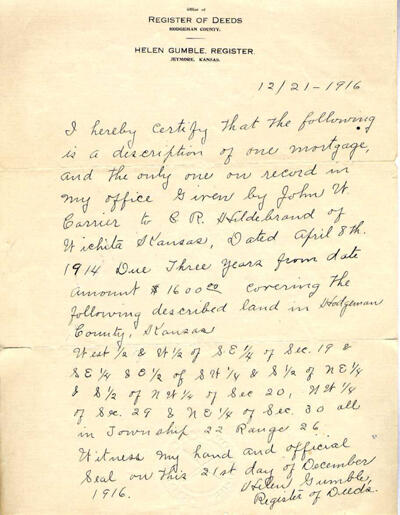 Office of
REGISTER OF DEEDS
HODGEMAN COUNTY.
HELEN GUMBLE, REGISTER.
JETMORE, KANSAS.
12/21-1916
I hereby certify that the following
is a description of one mortgage,
and the only one on record in
my office Given by John W
Carrier to C R. Hildebrand of
Wichita Kansas, Dated April 8th.
1914 Due Three Years from date
Amount $1600 00 covering the
following described land in Hodgeman
County, Kansas
West 1/2 & W 1/2 of S E 1/4 of Sec. 19 &
S E 1/4 & E 1/2 of S W 1/4 & S 1/2 of N E 1/4
& S 1/2 of N W 1/4 of Sec 20, N W 1/4
of Sec. 29 & N E 1/4 of Sec. 30 all
in Township 22 Range 26
Witness my hand and official
Seal on this 21st day of December
1916. Helen Gumble,
Register of Deeds.